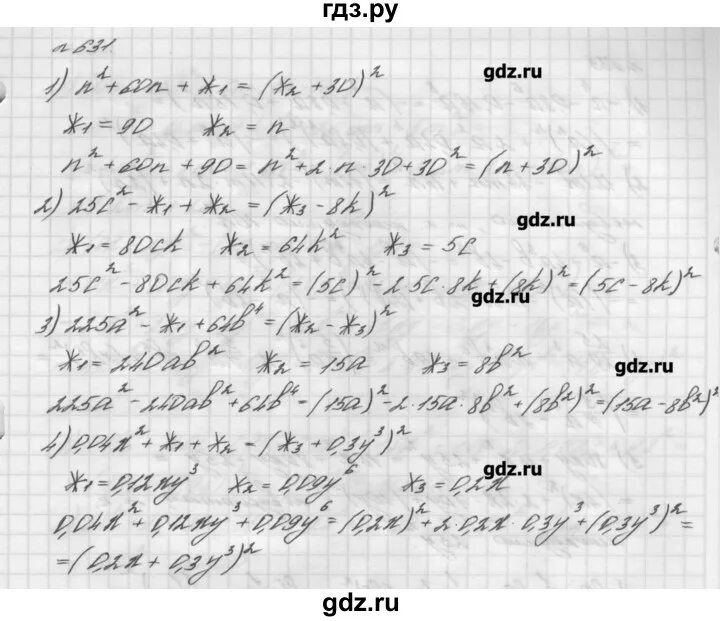 гдз.ру
n 631
gdz.ru
1) n² + 60n + *₁ = (*₂ + 30)²
*₁ = 90 *₂ = n
n² + 60n + 90 = n² + 2 · n · 30 + 30² = (n + 30)²
2) 25c² - *₁ + *₂ = (*₃ - 8k)²
gdz.ru
*₁ = 80ck *₂ = 64k² *₃ = 5c
25c² - 80ck + 64k² = (5c)² - 2 5c · 8k + (8k)² = (5c - 8k)²
gdz.ru
3) 225a² - *₁ + 64b⁴ = (*₂ - *₃)²
*₁ = 240ab² *₂ = 15a *₃ = 8b²
gdz.ru
225a² - 240ab² + 64b⁴ = (15a)² - 2 · 15a · 8b² + (8b²)² = (15a - 8b²)²
4) 0,04x² + *₁ + *₂ = (*₃ + 0,3y³)²
gdz.ru
*₁ = 0,12xy³ *₂ = 0,09y⁶ *₃ = 0,2x
0,04x² + 0,12xy³ + 0,09y⁶ = (0,2x)² + 2 · 0,2x · 0,3y³ + (0,3y³)² =
= (0,2x + 0,3y³)²
gdz.ru